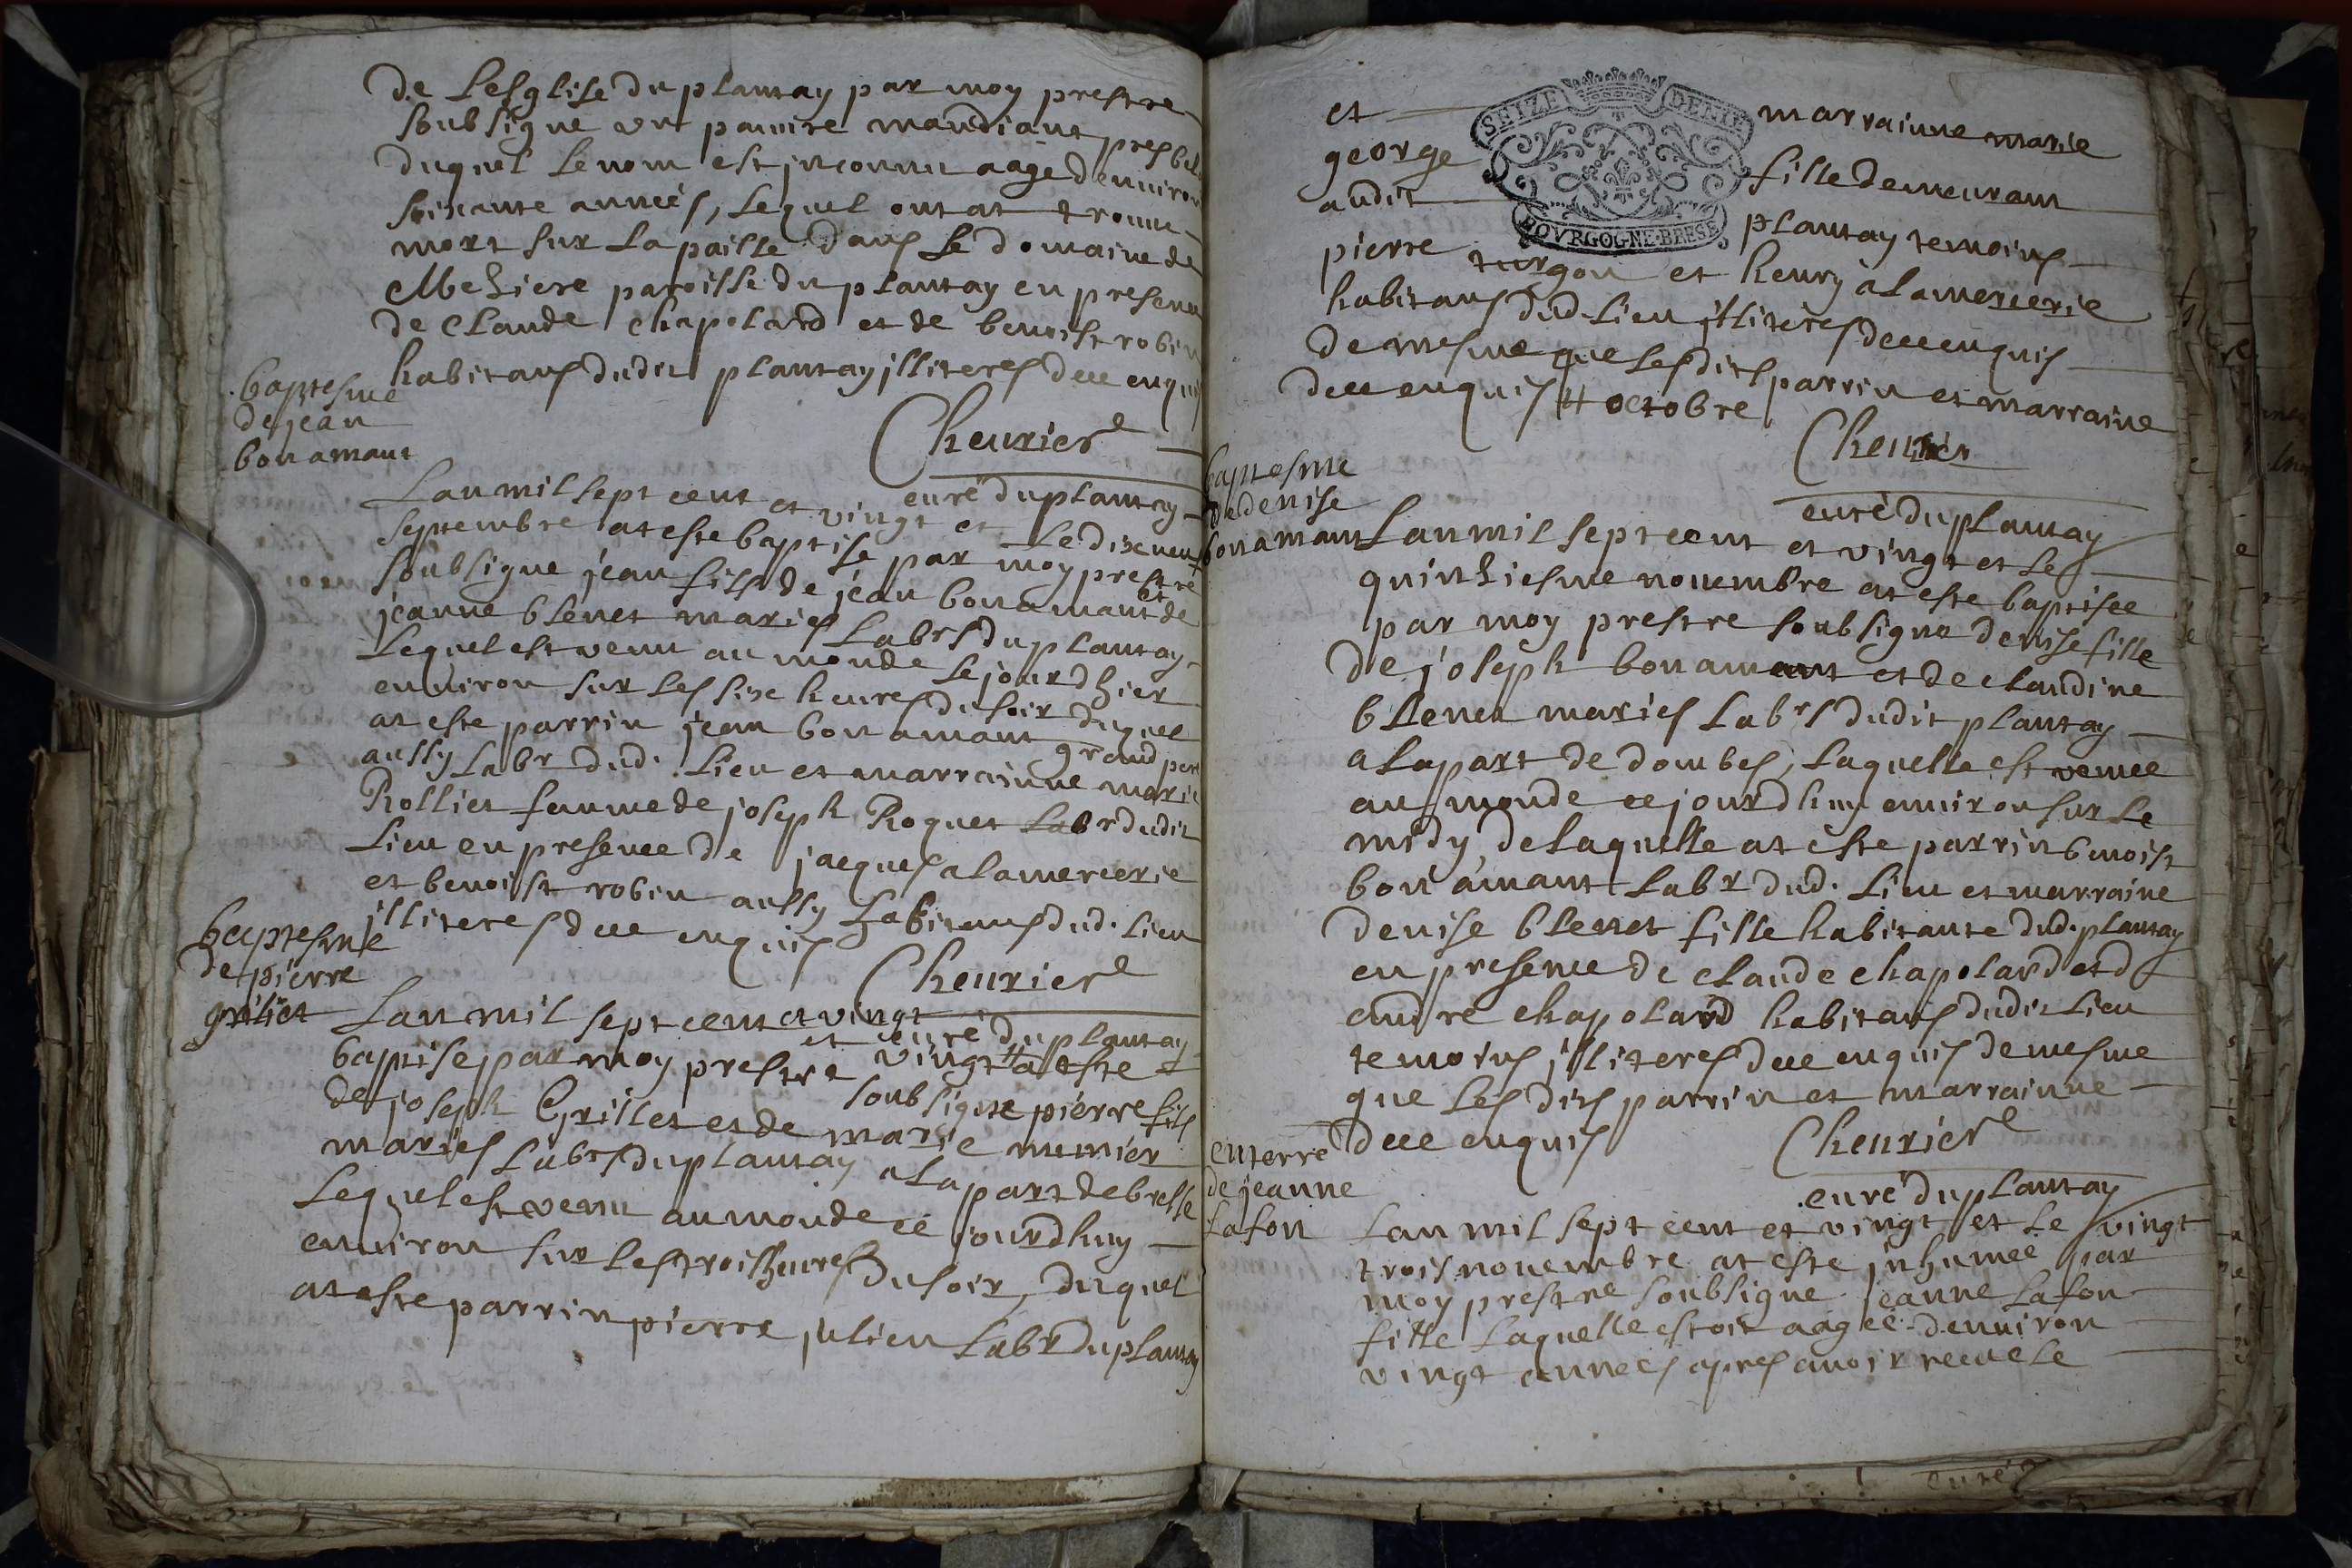 de Lesglise du plantay par moy prestre
soubsigne un pauvre mandiant
duquel le nom est inconnu aagé denuiron
soixante années, lequel ont at trouue
mort sur la paille dans le domaine de
Meziere paroisse du plantay en presence
de Claude chapolard et de benoist robin
habitans dudit plantay illiteres de ce enquis
Cheurier
curé du plantay
baptesme
de jean
bonamant
Lan mil sept cent et vingt et le dixneuf
septembre at este baptise par moy prestre
soubsigne jean fils de jean bonamant et de
jeanne blenet mariés labrs du plantay
lequel est venu au monde le jour dhier
enuiron sur les six heures du soir duquel
at este parrin jean bonamant grand pere
aussy labr dud. lieu et marrainne marie
Rollier famme de joseph Roques labr dudit
lieu en presence de jacques alamercerie
et benoist robin aussy habitans dud. lieu
illiteres de ce enquis
Cheurier
curé du plantay
baptesme
de pierre
grilliet
Lan mil sept cent et vingt et vingt # a este
baptise par moy prestre soubsigne pierre fils
de joseph Grillet et de marie munier
mariés labrs du plantay a la part de bresse
lequel est venu au monde ce jourdhuy
enuiron sur les trois heures du soir, duquel
at este parrin pierre julien labr du plantay
et marrainne marie
george fille demeurant
audit plantay temoins
pierre turgon et henry alamercerie
habitans dud. lieu illiteres de ce enquis
de mesme que lesdits parrin et marraine
de ce enquis # octobre
Cheurier
curé du plantay
SEIZE DENIE
BOVRGOGNE·BRESE
baptesme
de denise
bonamant
Lan mil sept cent et vingt et le
quinziesme nouembre at este baptisee
par moy prestre soubsigne denise fille
de joseph bonamant et de claudine
blenet mariés labrs dudit plantay
a la part de dombes, laquelle est venue
au monde ce jourdhuy enuiron sur le
midy, de laquelle at este parrin benoist
bonamant labr dud. lieu et marraine
denise blenet fille habitante dud. plantay
en presence de claude chapolard et d
andre chapolard habitans dudit lieu
temoins illiteres de ce enquis de mesme
que lesdits parrin et marrainne
de ce enquis
Cheurier
curé du plantay
enterre
de jeanne
lafon
Lan mil sept cent et vingt et le vingt
trois nouembre at este inhumée par
moy prestre soubsigne jeanne lafon
fille laquelle estoit aagée denuiron
vingt années apres auoir receu le